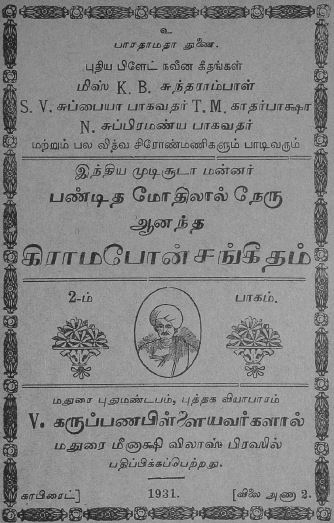 உ
பாரதமாதா துணை.
புதிய பிளேட் நவீன கீதங்கள்
மிஸ் K. B. சுந்தராம்பாள்
S. V. சுப்பையா பாகவதர் T. M. காதர்பாக்ஷா
N. சுப்பிரமண்ய பாகவதர்
மற்றும் பல வித்வ சிரோண்மணிகளும் பாடிவரும்
இந்திய முடிசூடா மன்னர்
பண்டித மோதிலால் நேரு
ஆனந்த
கிராமபோன் சங்கீதம்
2-ம் பாகம்.
மதுரை புதுமண்டபம், புத்தக வியாபாரம்
V. கருப்பணபிள்ளையவர்களால்
மதுரை மீனாக்ஷி விலாஸ் பிரஸில்
பதிப்பிக்கப்பெற்றது.
காபிரைட்] 1931. [விலை அணா 2.